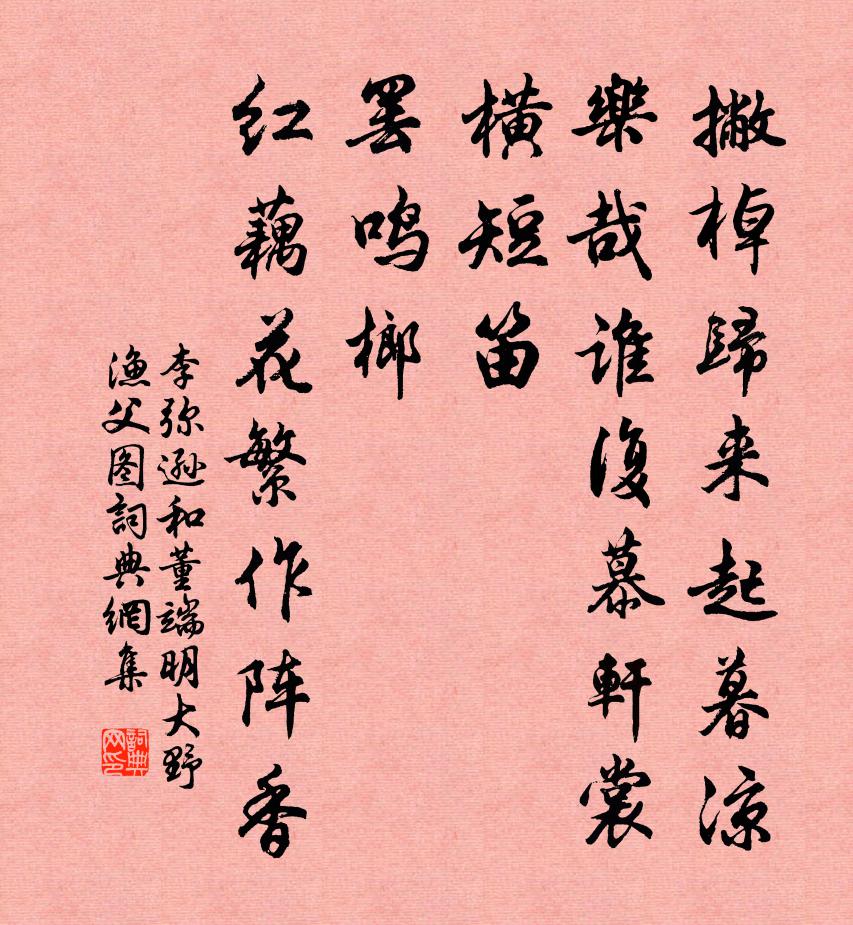 撇棹歸来起暮涼
樂哉誰復慕軒裳
橫短笛
罢鸣榔
红藕花繁作阵香
李弥遜和董端明大野
渔父图詞典網集
詞典网印